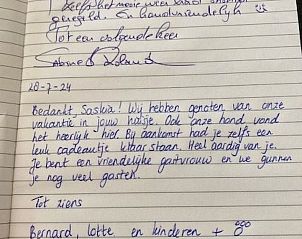 zelfs het mooie weer
geregeld. En hondvriendelijk
Tot een volgende keer
28-7-24
Bedankt, Saskia! Wij hebben genoten van onze
vakantie in jouw huisje. Ook onze hond vond
het heerlijk hier. Bij aankomst had je zelfs een
leuk cadeautje klaar staan. Heel aardig van je.
Je bent een vriendelijke gastvrouw en we gunnen
je nog veel gasten.
Tot ziens
Bernard, Lotte en kinderen +